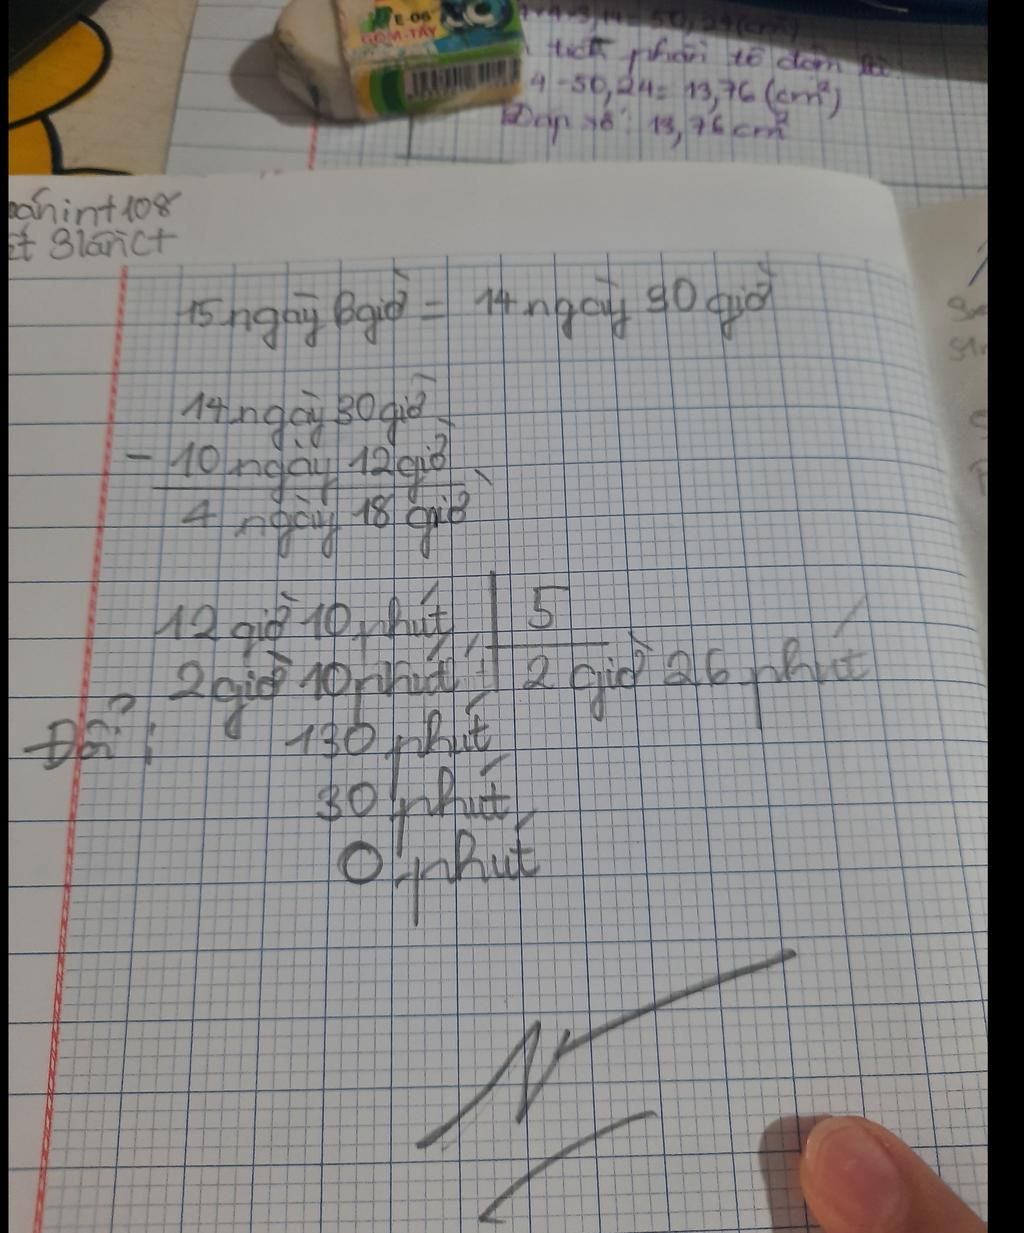 E-06
GÔM-TẨY
4×4×3,14=50,24(cm²)
tích phần tô đậm là
4-50,24=13,76(cm²)
Đáp số: 13,76cm²
15 ngày 6 giờ = 14 ngày 30 giờ
14 ngày 30 giờ
- 10 ngày 12 giờ
4 ngày 18 giờ
12 giờ 10 phút 5
2 giờ 10 phút 2 giờ 26 phút
Đổi: 130 phút
30 phút
0 phút